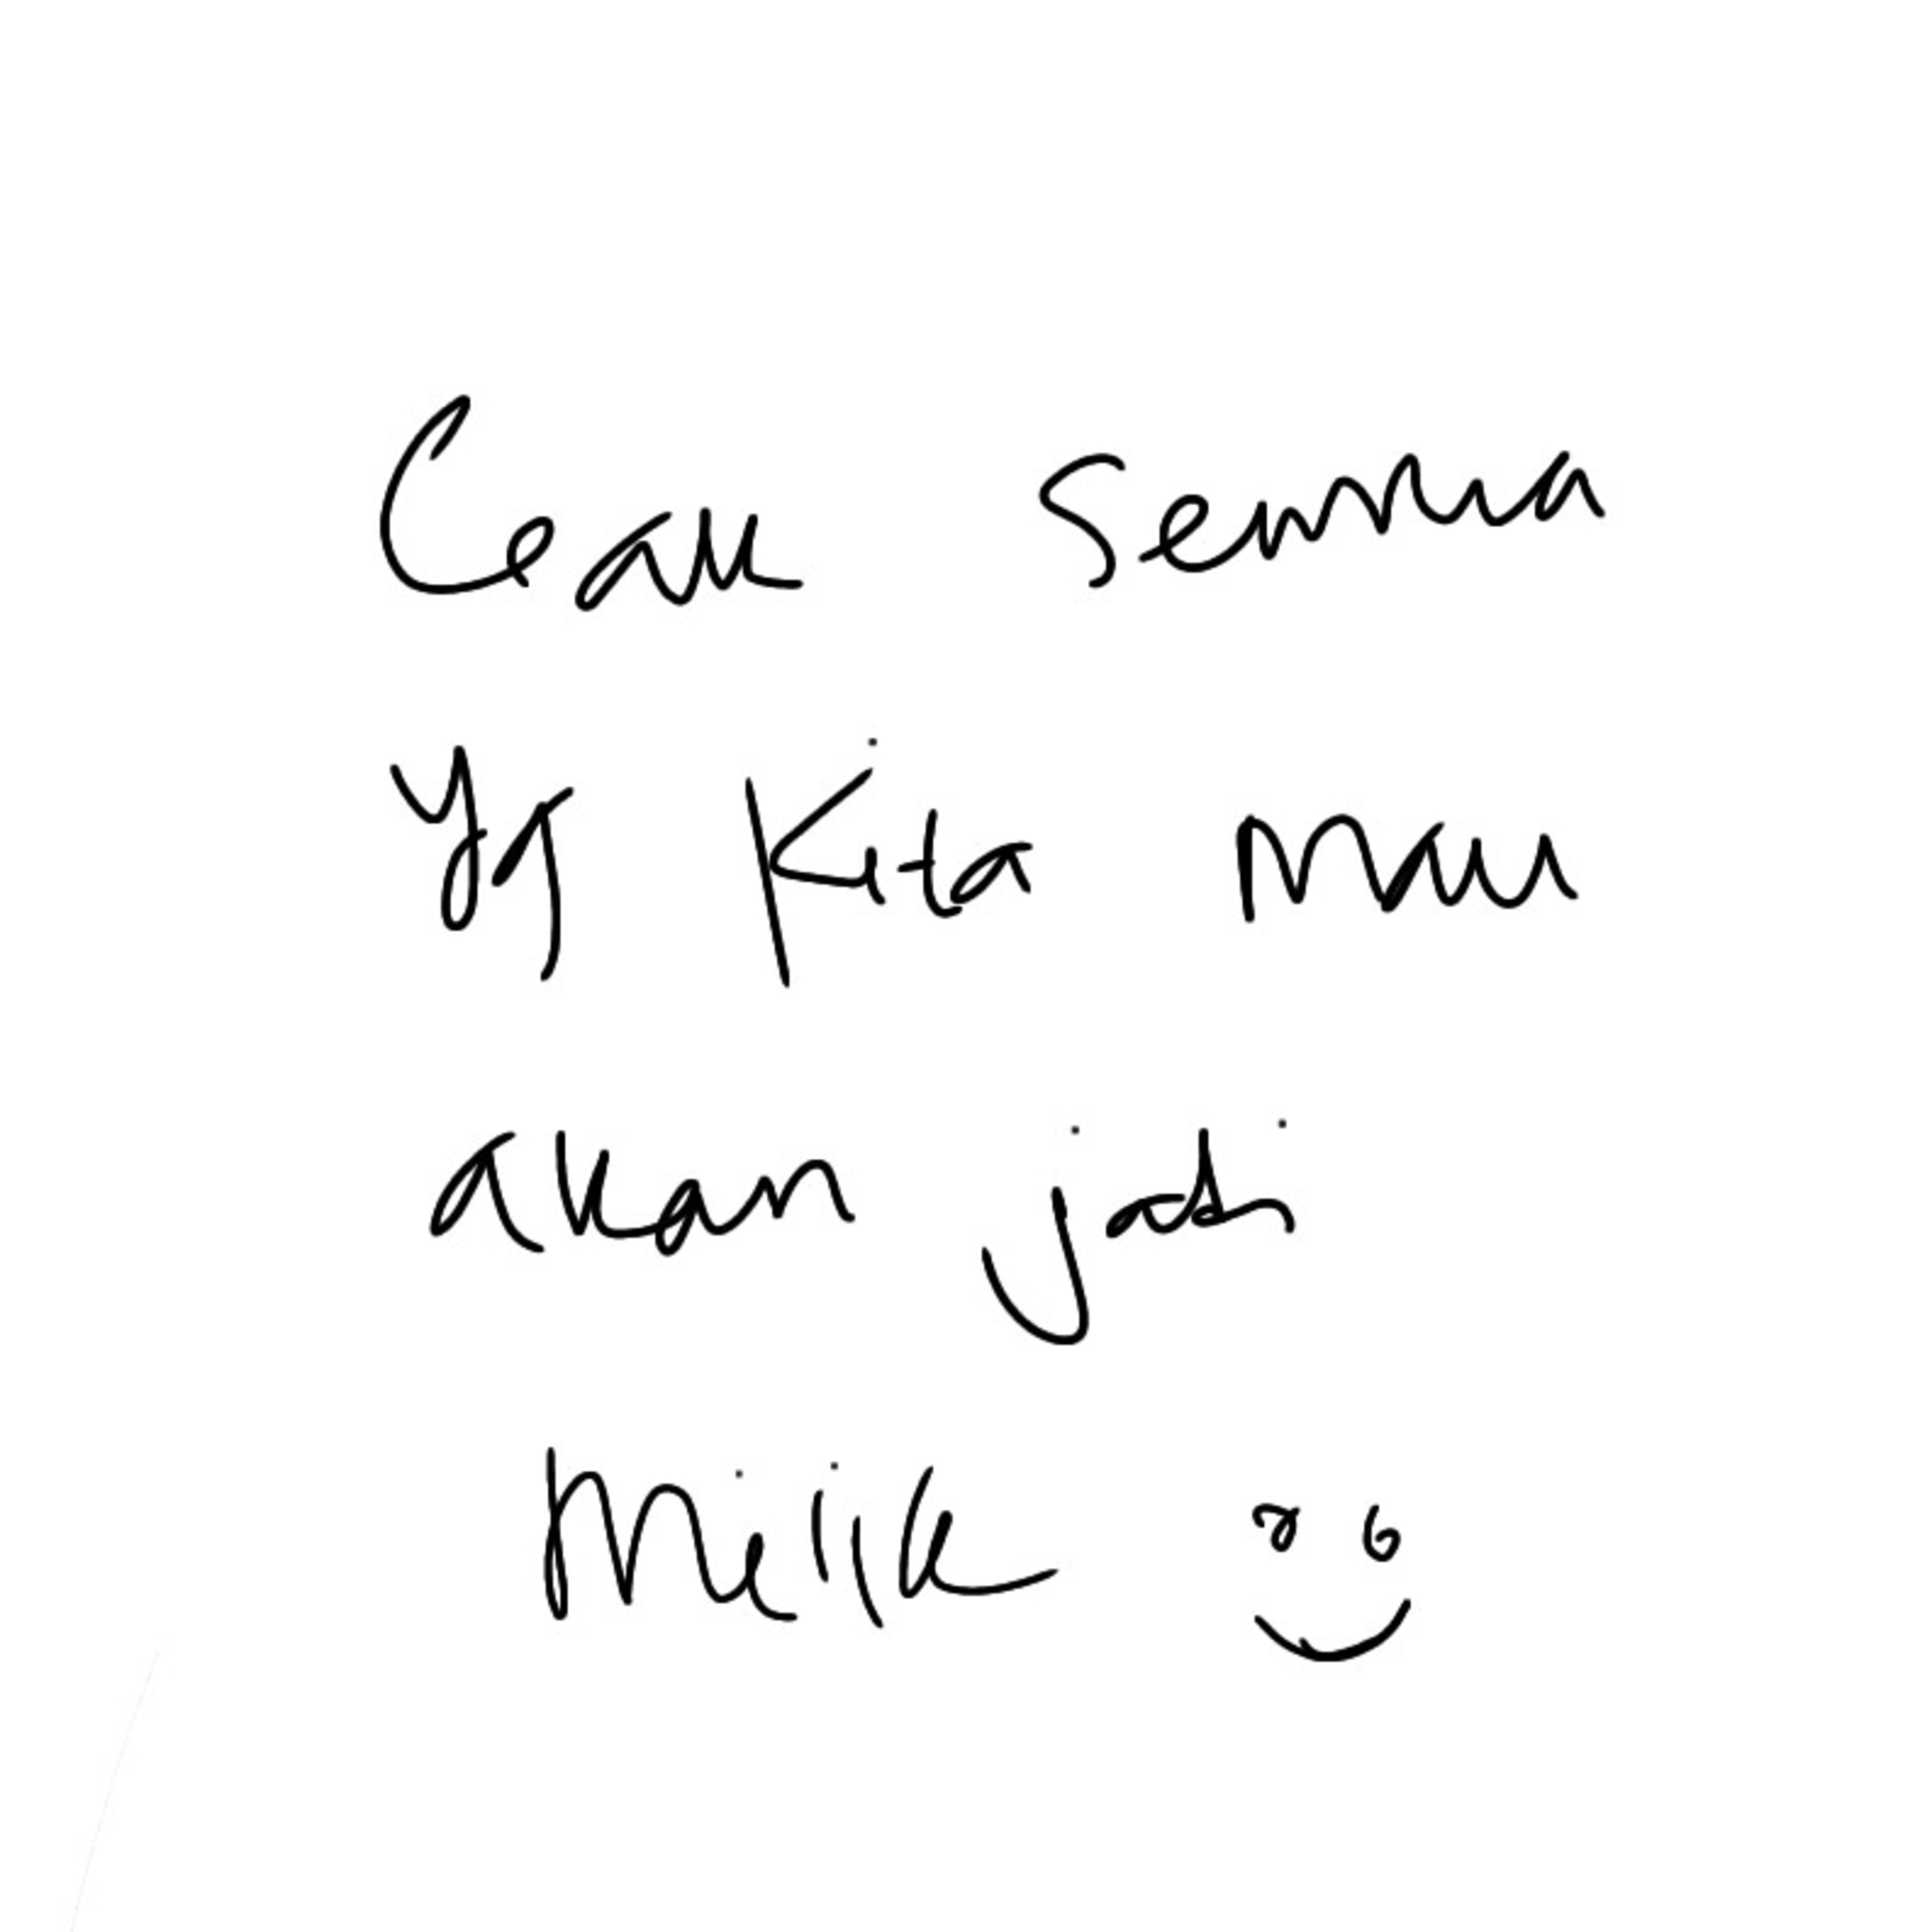 semua
yg kita mau
akan jadi
Milik